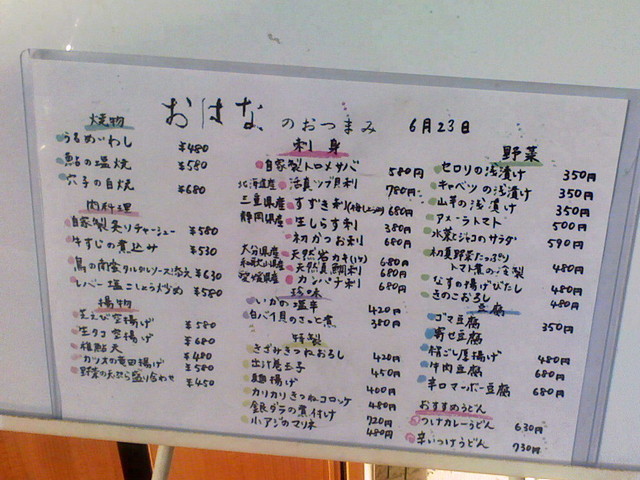 おはな のおつまみ 6月23日
焼物
うるめいわし ¥480
鮎の塩焼 ¥580
穴子の白焼 ¥680
肉料理
自家製炙りチャーシュー ¥580
牛すじの煮込み ¥530
鳥の南蛮タルタルソース添え ¥630
レバー塩こしょう炒め ¥580
揚物
芝えび空揚げ ¥580
生タコ空揚げ ¥680
稚鮎天 ¥480
カツオの竜田揚げ ¥580
野菜の天ぷら盛り合わせ ¥450
刺身
自家製トロメサバ 580円
北海道産 活真ツブ貝刺 780円
三重県産 すずき刺 680円
静岡県産 生しらす刺 380円
初かつお刺 680円
大分県産 天然岩カキ 680円
和歌山県産 天然真鯛刺 680円
愛媛県産 カンパチ刺 680円
珍味
いかの塩辛 420円
白バイ貝のさっと煮 380円
特製
きざみきつねおろし 420円
出汁巻玉子 450円
麺揚げ 400円
カリカリきつねコロッケ 480円
銀ダラの煮付け 720円
小アジのマリネ 480円
野菜
セロリの浅漬け 350円
キャベツの浅漬け 350円
山芋の浅漬け 350円
アメーラトマト 500円
水菜とジャコのサラダ 590円
初夏野菜たっぷり
トマト煮の冷製 480円
なすの揚げびたし 480円
きのこおろし 480円
豆腐
ゴマ豆腐 350円
寄せ豆腐
絹ごし厚揚げ 480円
牛肉豆腐 680円
辛口マーボー豆腐 680円
おすすめうどん
つけカレーうどん 630円
辛いつけうどん 730円